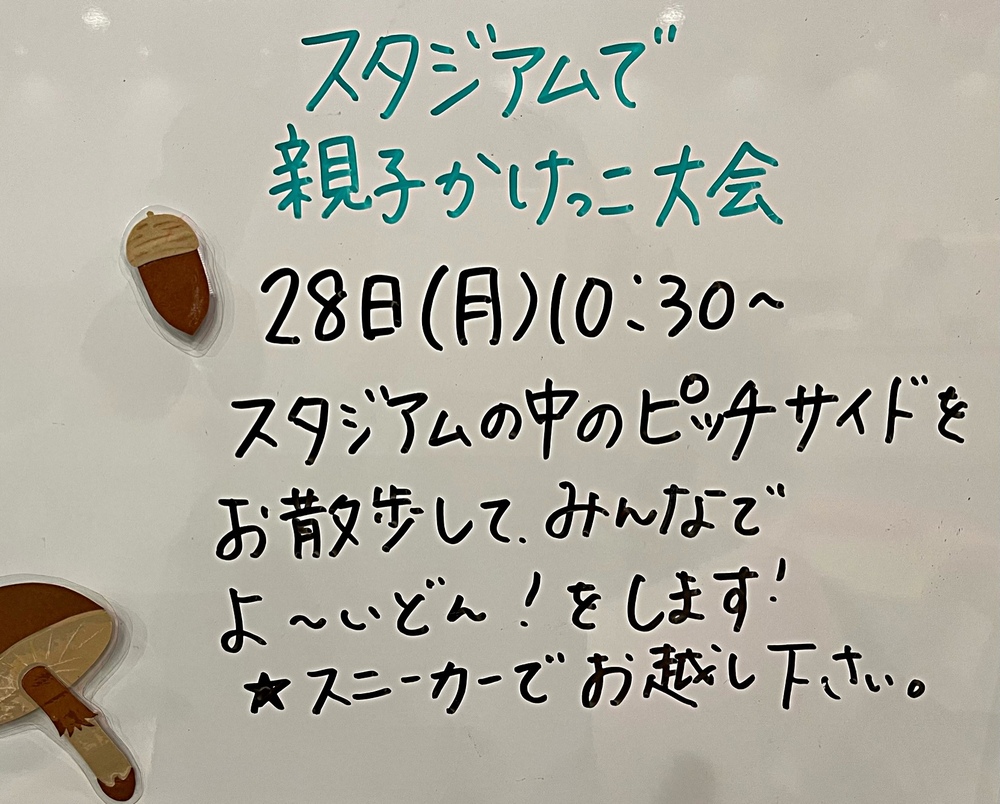 スタジアムで
親子かけっこ大会
28日(月)10:30～
スタジアムの中のピッチサイドを
お散歩して、みんなで
よ～いどん!をします!
★スニーカーでお越し下さい。